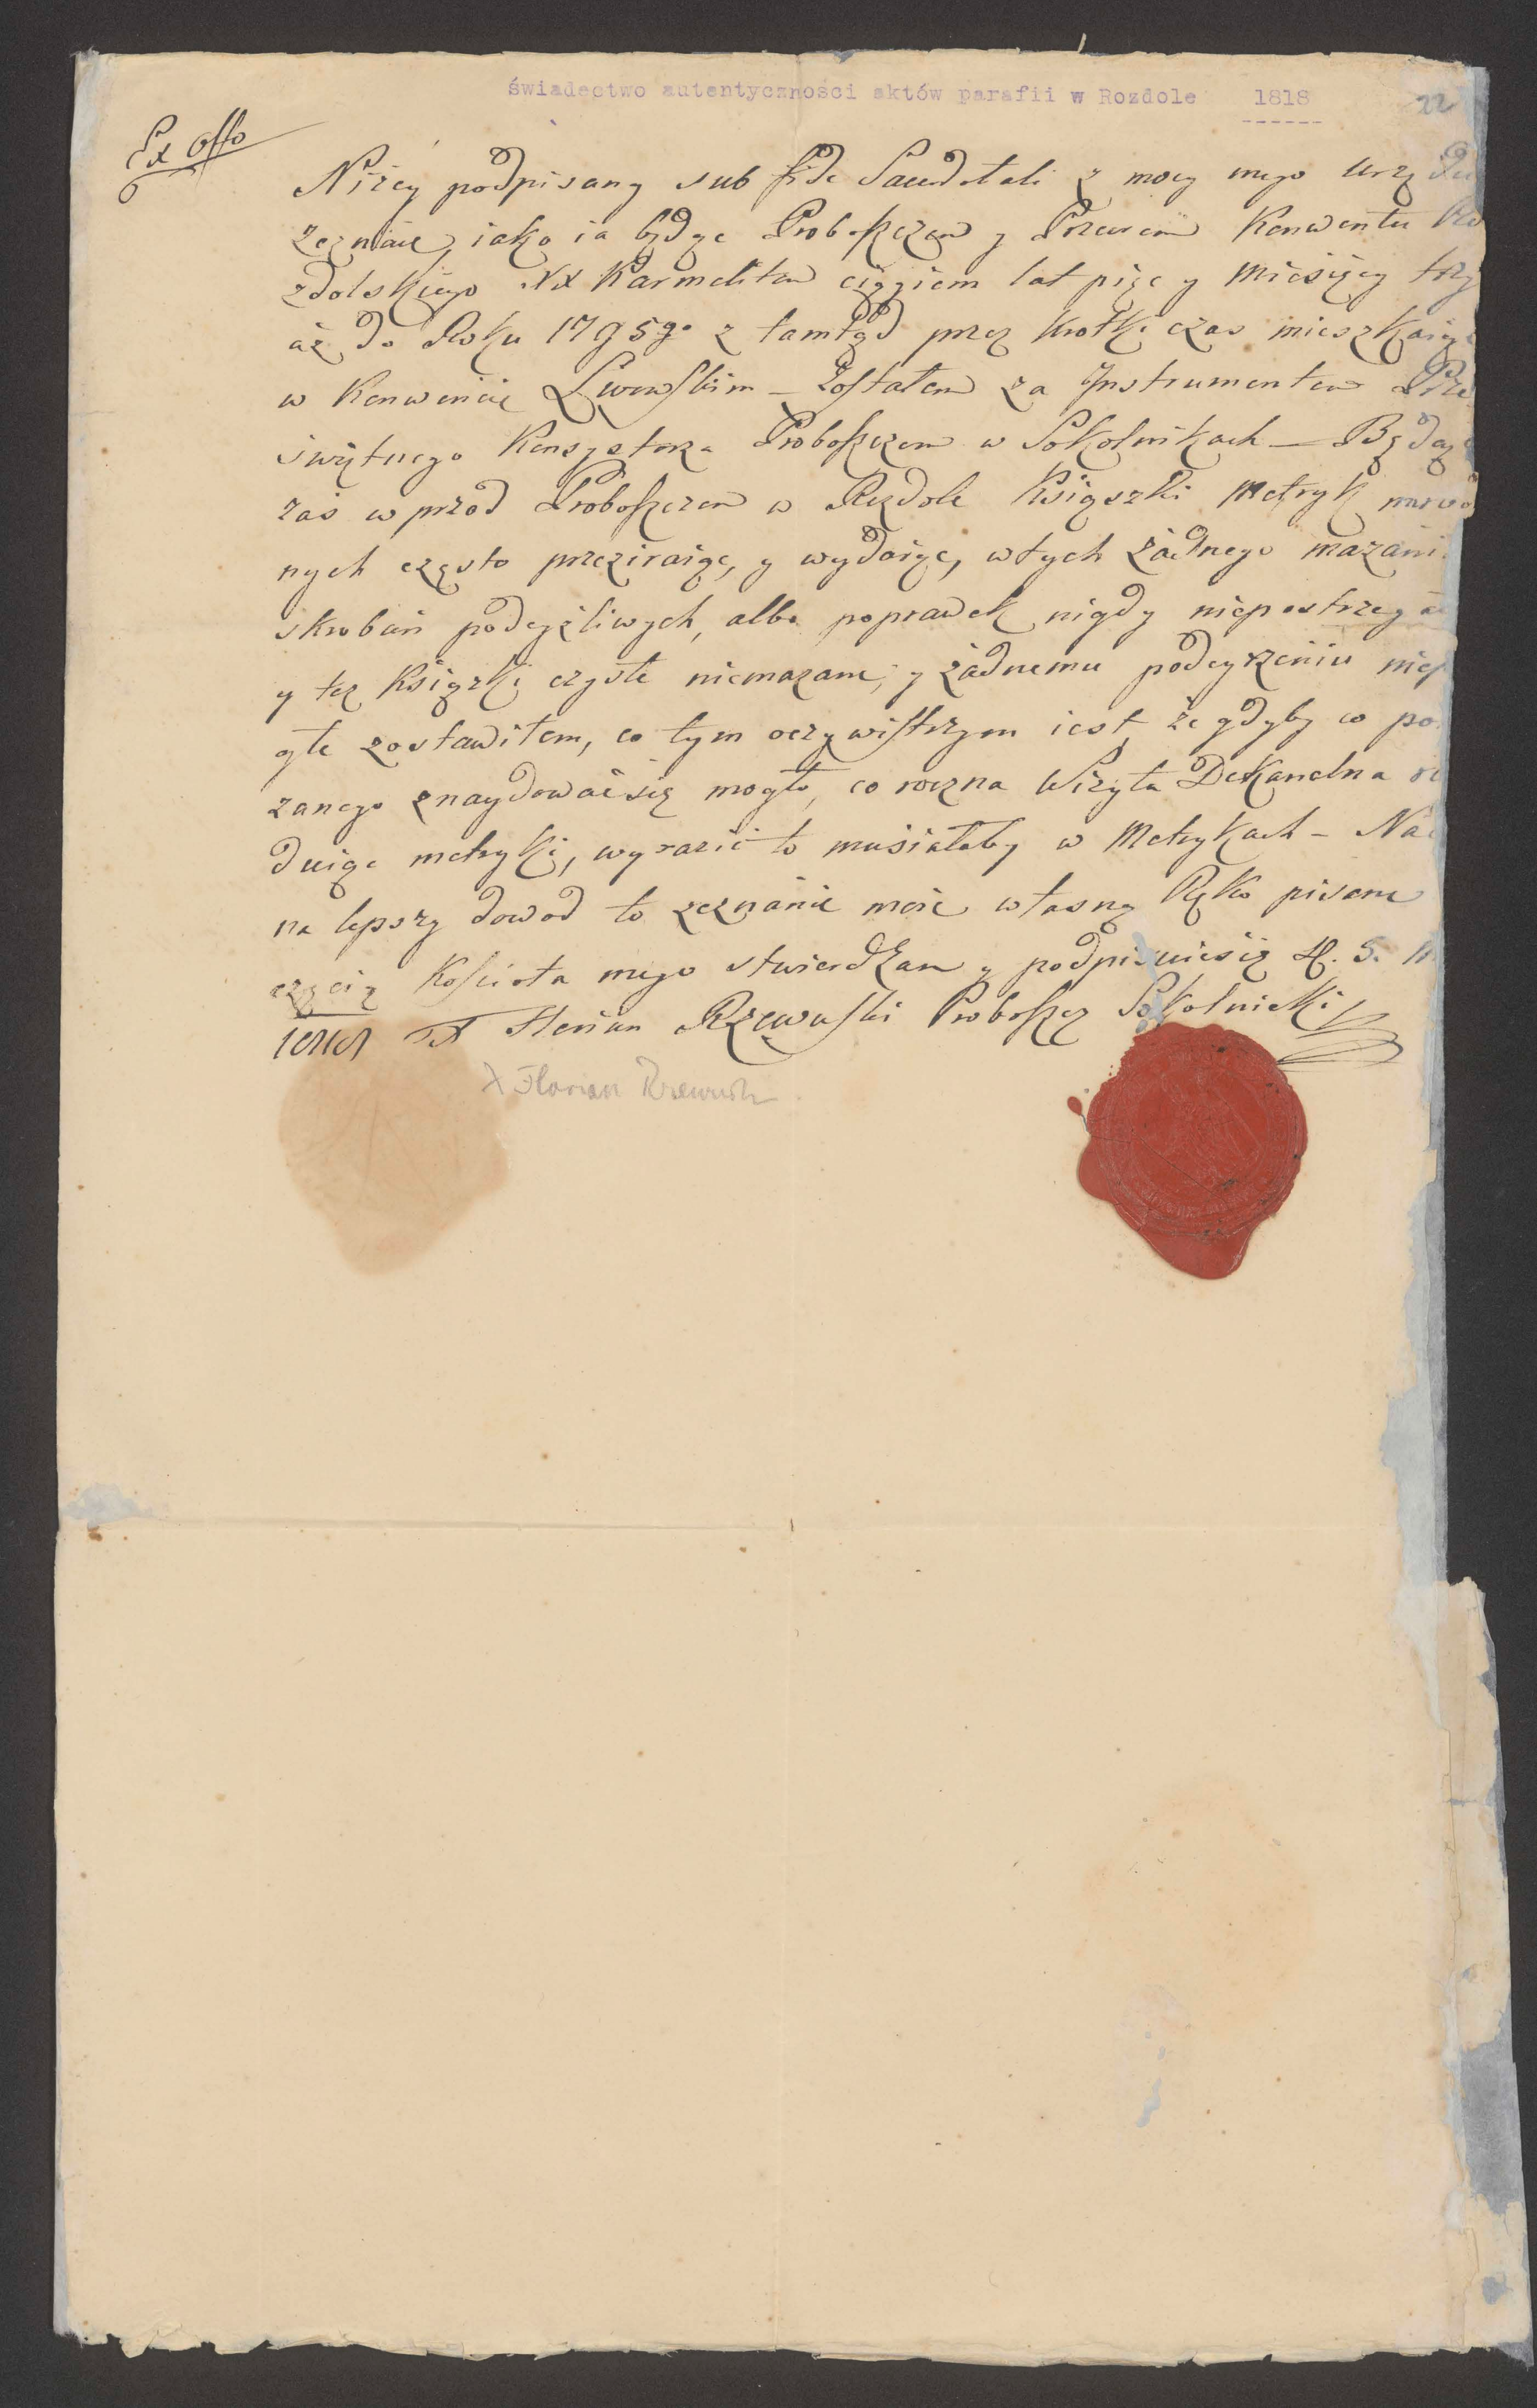 świadectwo autentyczności aktów parafii w Rozdole 1818
22
Ex Offo
Niżey podpisany sub fide Sacerdotali z mocy mego Urzędu
zeznaię, iako ia będąc Proboszczem y Przeorem Konwentu Ro
zdolskiego XX Karmelitow ciągiem lat pięc y Miesięcy trzy
aż do Roku 1795go z tamtąd przez krotki czas mieszkaiąc
w Konwencie Lwowskim – Zostałem za Instrumentem Prze
świętnego Konsystorza Proboszczem w Sokolnikach – Będąc
zaś w przod Proboszczem w Rozdole Książki Metryk
nych często przeziraiąc, y wydaiąc, w tych żadnego mazani
skroban podeyżliwych, albo poprawek nigdy niepostrzeg
y tez Książki czyste niemazane, y żadnemu podeyrzeniu niep
głe zostawiłem, co tym oczywistszym iest, że gdyby co po
zanego znaydować się mogło, co roczna Wizyta Dekanalna
duiąc metryki, wyrazić to musiałaby w Metrykach – Na
na lepszy dowod to zeznanie moie własną Ręką pisane
częcią Kościoła mego stwierdzam y podpisuię się
1818 X Florian Rzewuski Proboszcz Sokolnicki
X Florian Rzewuski